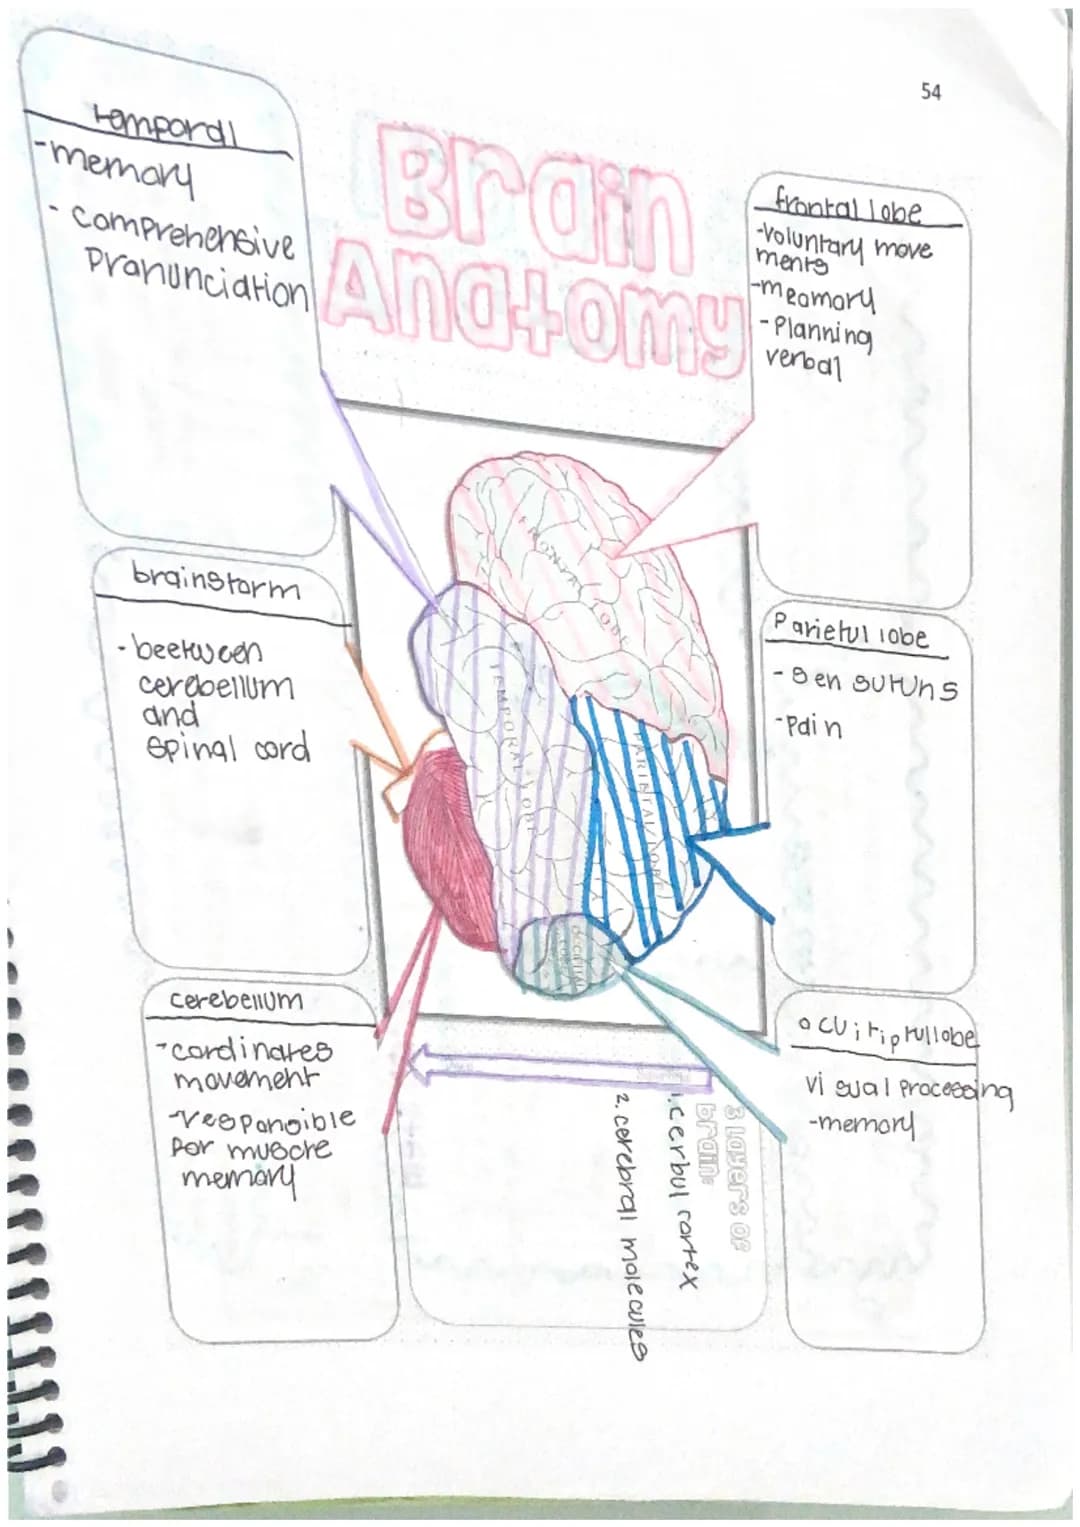 54
Brain
Anatomy
temporal
-memory
- comprehensive
pranunciation
frontal lobe
-voluntary move
ments
-meomory
-Planning
verbal
brainstorm
- beetween
cerebellum
and
spinal cord
Parietul lobe
- sensuruns
-pain
cerebellum
-cordinates
movement
-responsible
por muscre
memory
ocuiriprullobe
visual processing
-memory
FRONTAL LOBE
TEMPORAL LOBE
PARIETAL LOBE
OCCIPITAL
LOBE
3 layers of
brain:
1. cerbul cortex
2. cerebral molecules